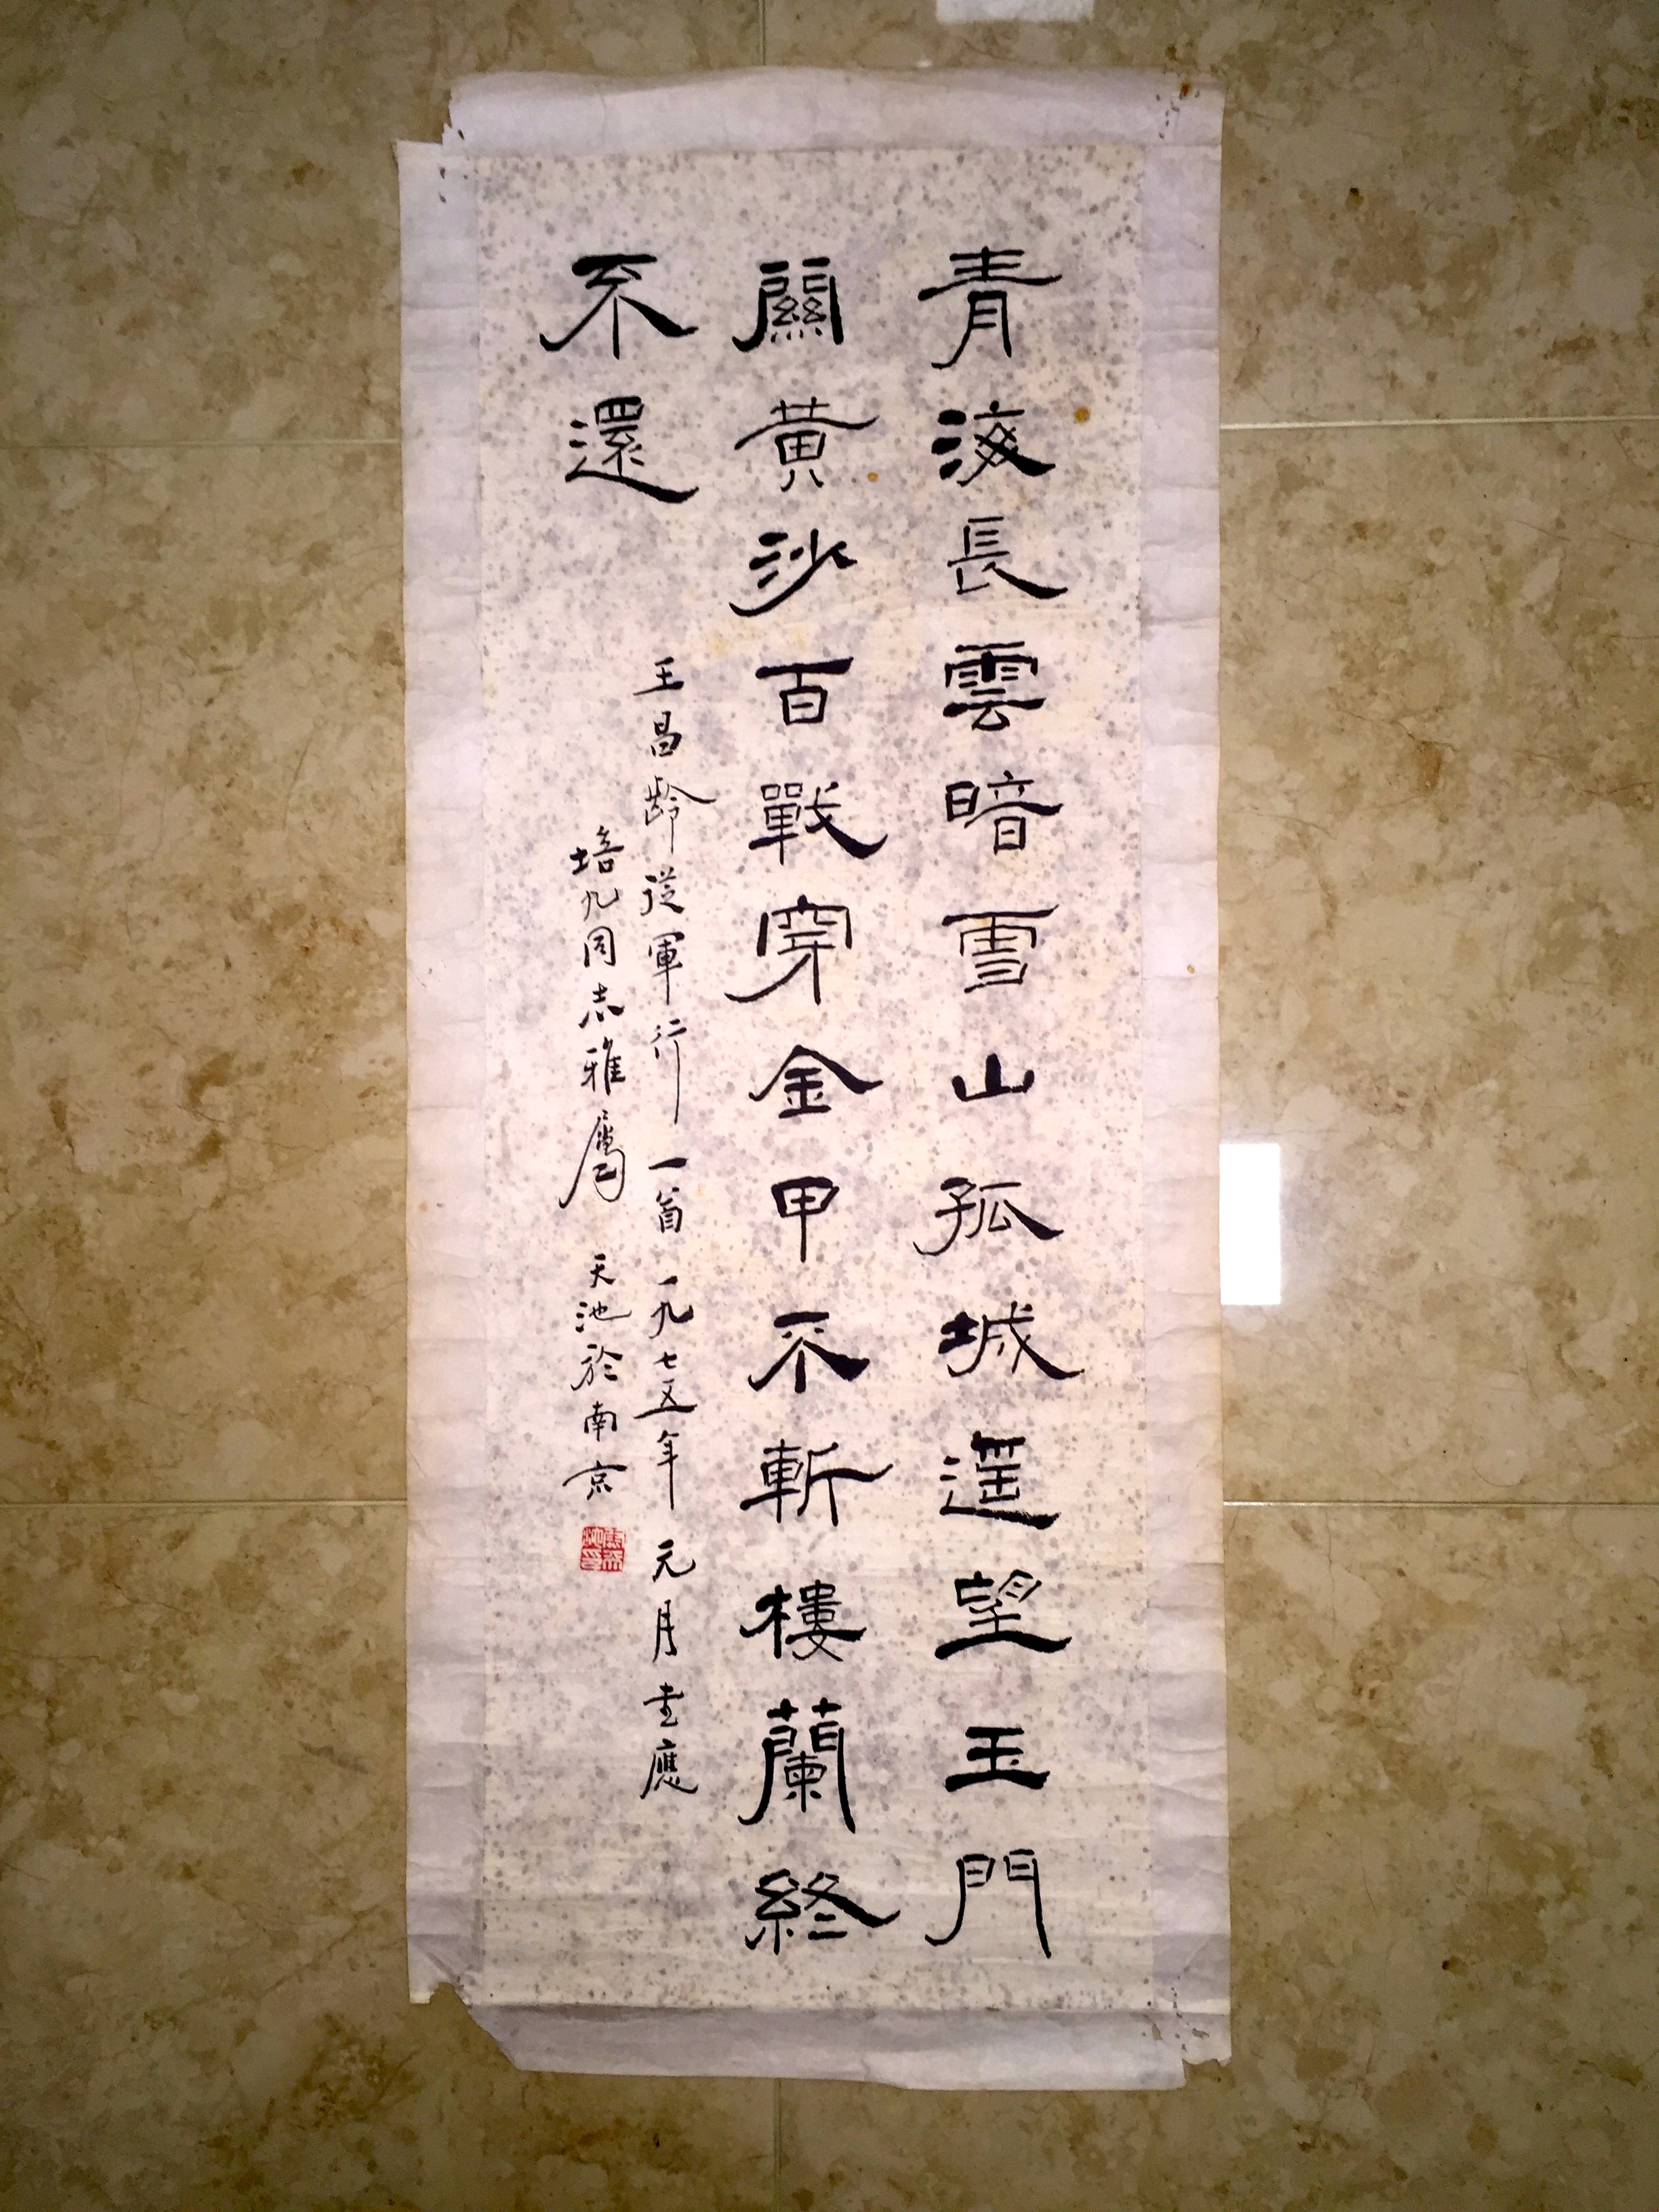 青海長雲暗雪山孤城遥望玉門
關黄沙百戰穿金甲不斬樓蘭終
不還
王昌齡從軍行一首一九七五年元月書應
培九同志雅屬 天池於南京
尉天池印